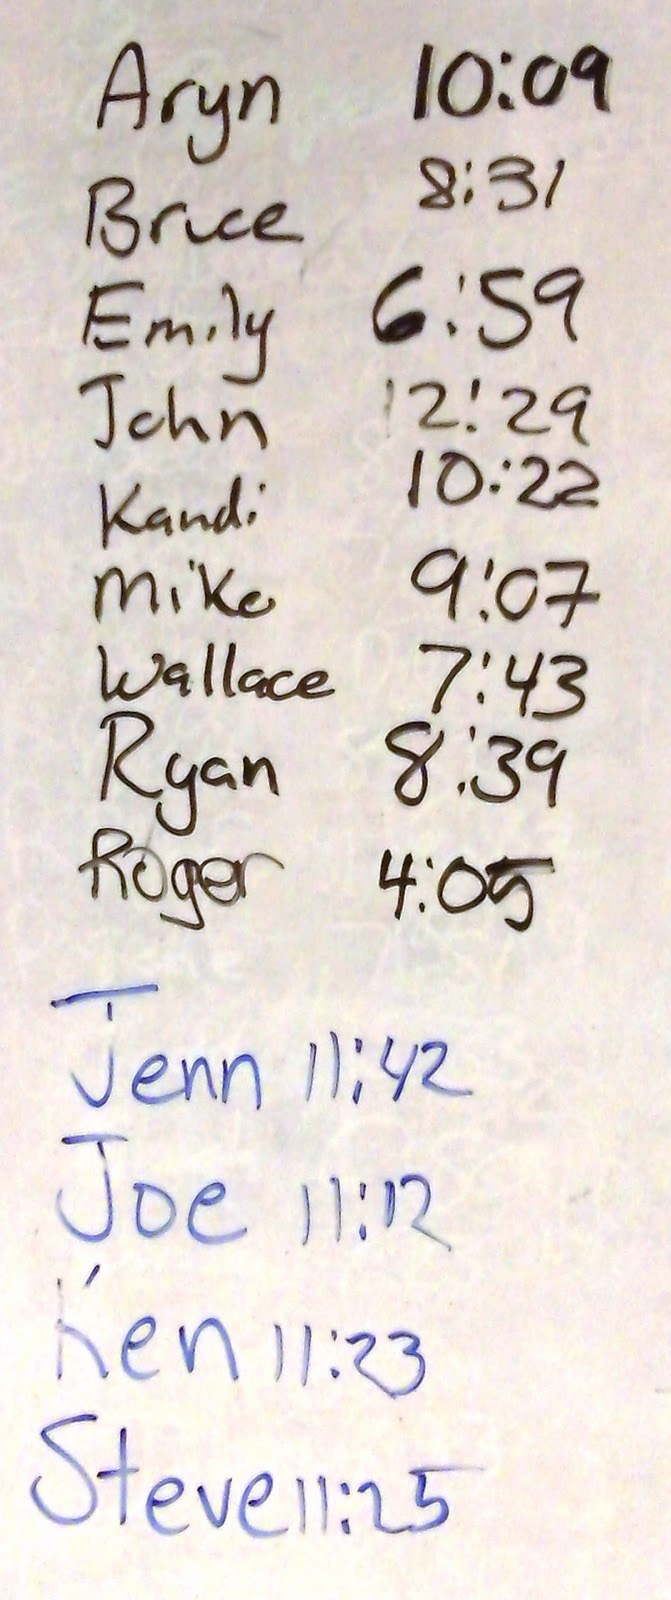 Aryn 10:09
Bruce 8:31
Emily 6:59
John 12:29
Kandi 10:22
Mike 9:07
Wallace 7:43
Ryan 8:39
Roger 4:05
Jenn 11:42
Joe 11:12
Ken 11:23
Steve 11:25